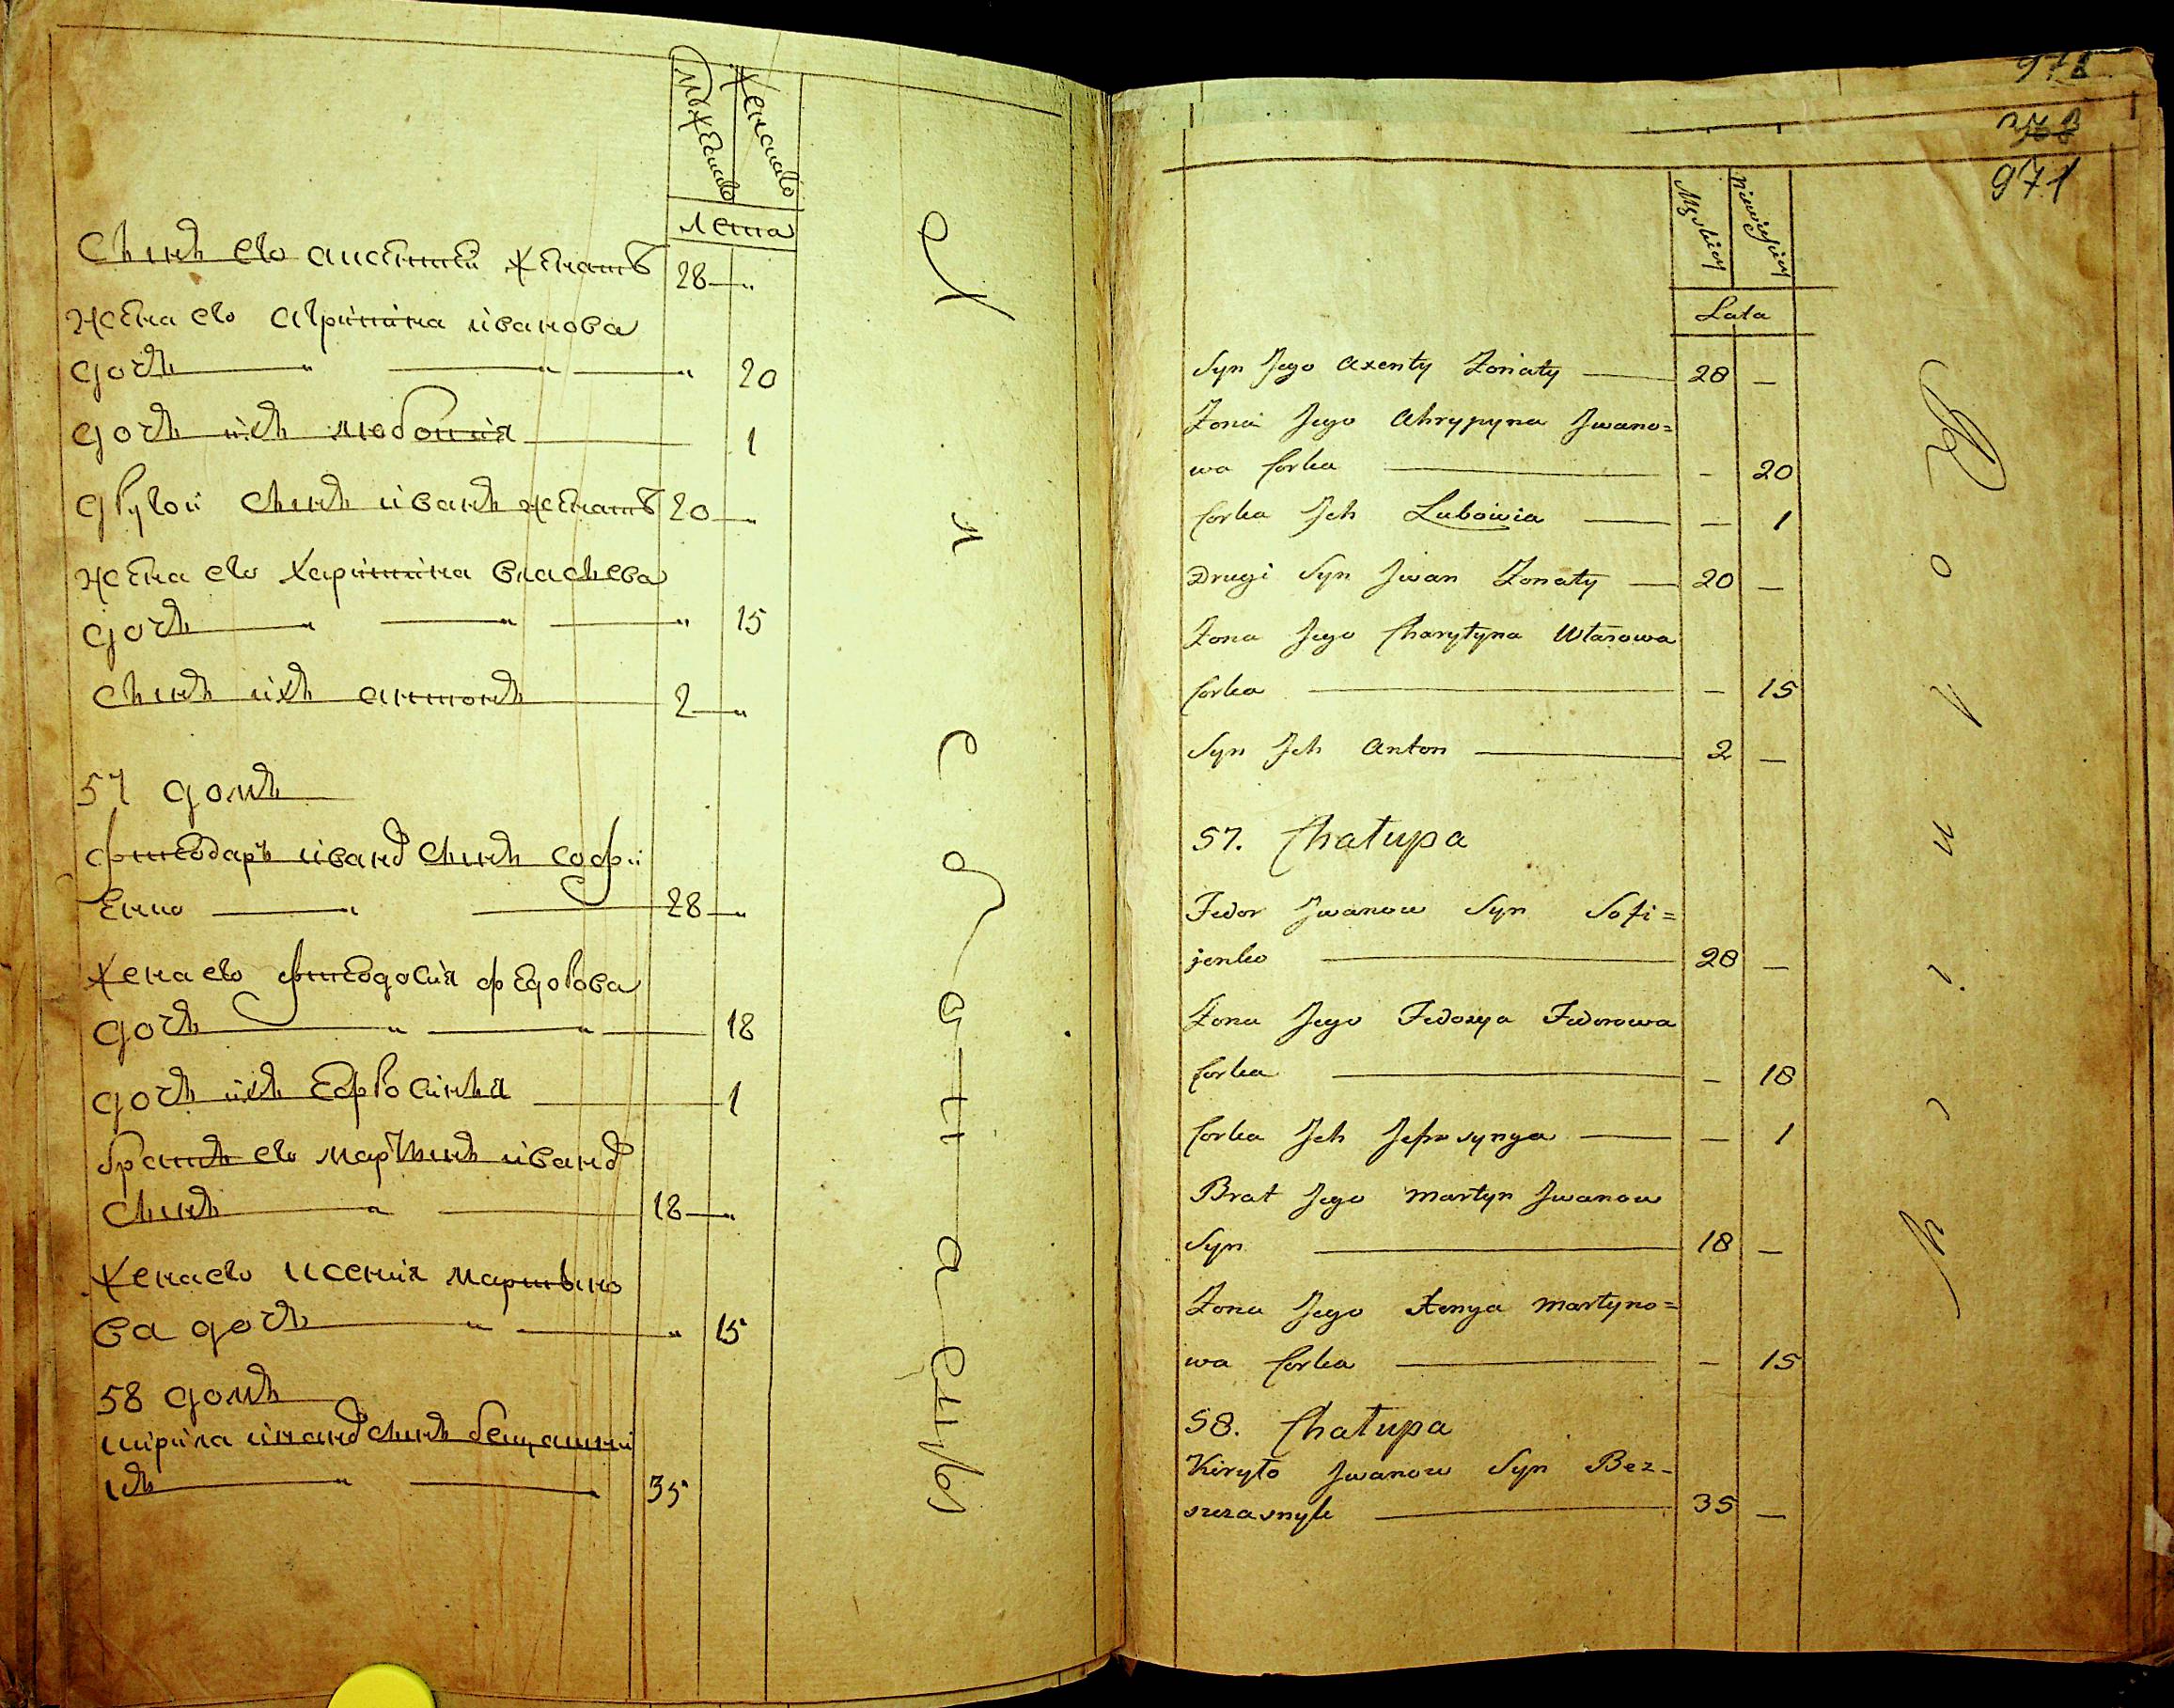 мужеска
женска
лета
Сынъ его аксентий женатъ 28
жена его агрипина иванова
дочъ 20
дочъ ихъ любовия 1
другой сынъ иванъ женатъ 20
жена его харитина власьева
дочъ 15
Сынъ ихъ антонъ 2
57 домъ
иванов сынъ софи
енко 28
жена его федорова
дочъ 18
дочъ ихъ ефросиния 1
братъ его мартынъ иванов
сынъ 18
жена его ксения мартыно
ва дочъ 15
58 домъ
кирила иванов сынъ
35
971
Męskiey
Lata
Syn Jego Axenty Żonaty 28 —
Żona Jego Ahrypyna Jwano=
wa Corka — 20
Corka Jch Lubowia — 1
Drugi Syn Jwan Żonaty 20 —
Żona Jego Charytyna Własowa
Corka — 15
Syn Jch Anton 2 —
57. Chałupa
Fedor Jwanow Syn Sofi=
jenko 28 —
Żona Jego Fedosya Fedorowa
Corka — 18
Corka Jch Jefrosynya — 1
Brat Jego Martyn Jwanow
Syn 18 —
Żona Jego Xenya Martyno=
wa Corka — 15
58. Chałupa
Kiryło Jwanow Syn Bez-
szczasnyk 35 —